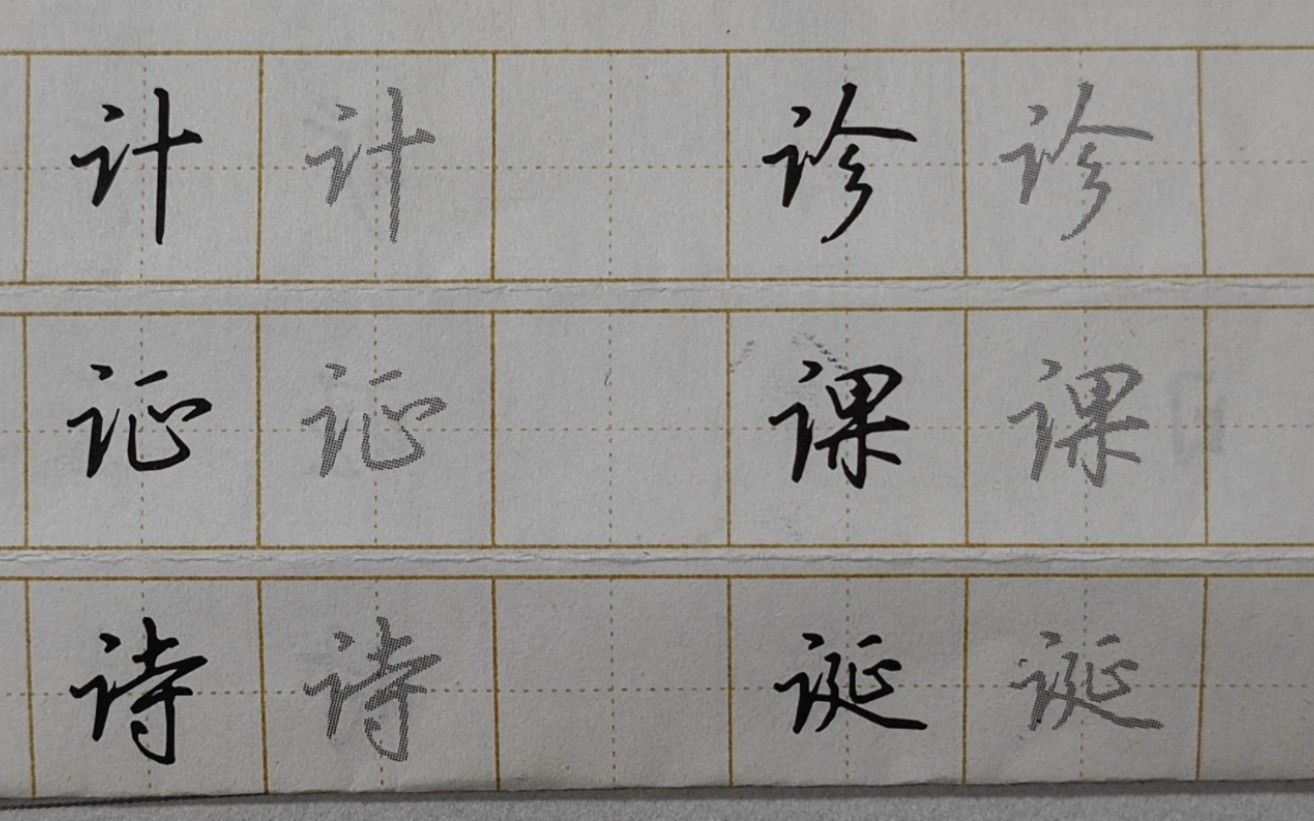 计 计 诊 诊
证 证 课 课
诗 诗 诞 诞